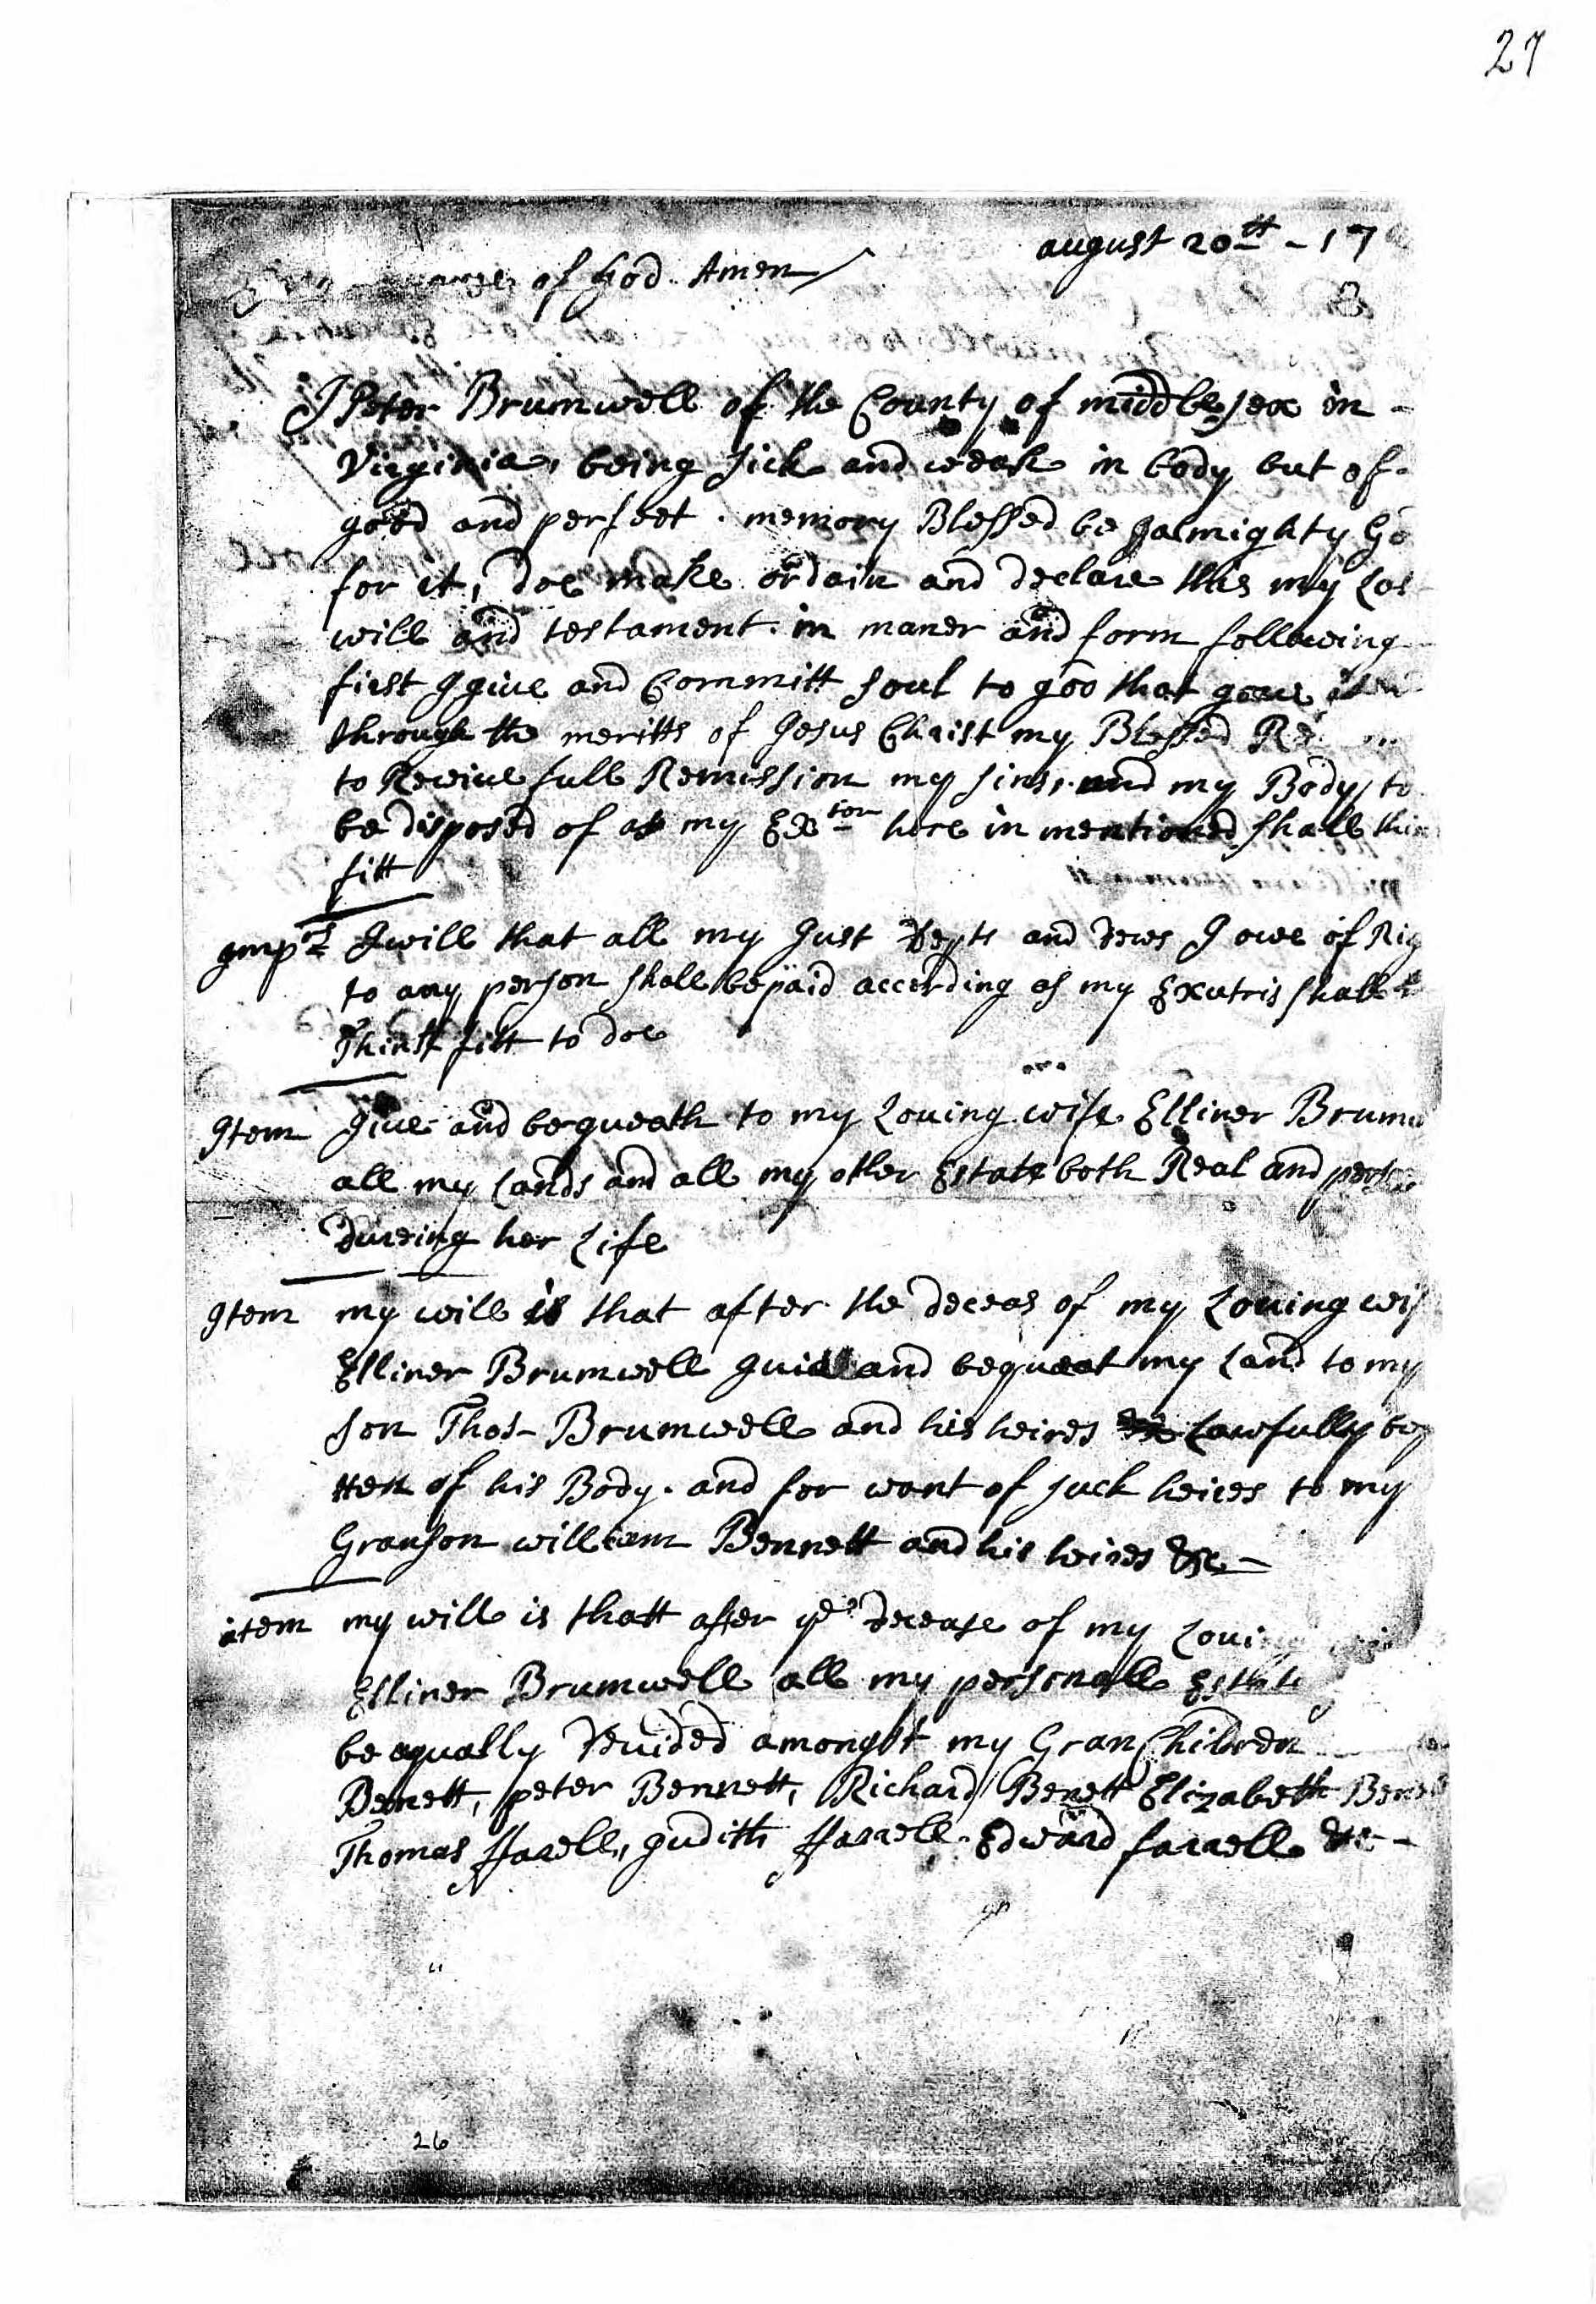 27
august 20tt - 17
of God Amen
I Peter Brumwell of the County of middlesex in -
Virginia, being sick and weak in body but of
good and perfeet memory Blessed be Jalmighty Go
for it, doe make ordain and declare this my Las
will and testament in maner and form following
first I give and Committ soul to god that gave it
through the meritts of Jesus Christ my Blessed Re
to Receive full Remission my sins, and my Body to
be disposed of as my Extor here in mentioned shall thin
fitt
Imprs I will that all my Just Depts and dews I owe of Rig
to any person shall be paid according as my Exutris shall
Think fitt to doe
Item Give and bequeath to my Loving wife Elliner Brumw
all my Lands and all my other Estate both Real and perso
Dureing her Life
Item my will is that after the deceas of my Loving wif
Elliner Brumwell and bequeat my Land to my
son Thos- Brumwell and his heires Lawfully beg
tten of his Body. and for want of such heires to my
Granson william Bennett and his heires &c -
item my will is thatt after ye decease of my Loving
Elliner Brumwell all my personall Estate
be equally devided amongst my Gran Children
Bennett, peter Bennett, Richard Benett Elizabeth Benet
Thomas ffarell, Judith ffarrell. Edward farrell &c -
26